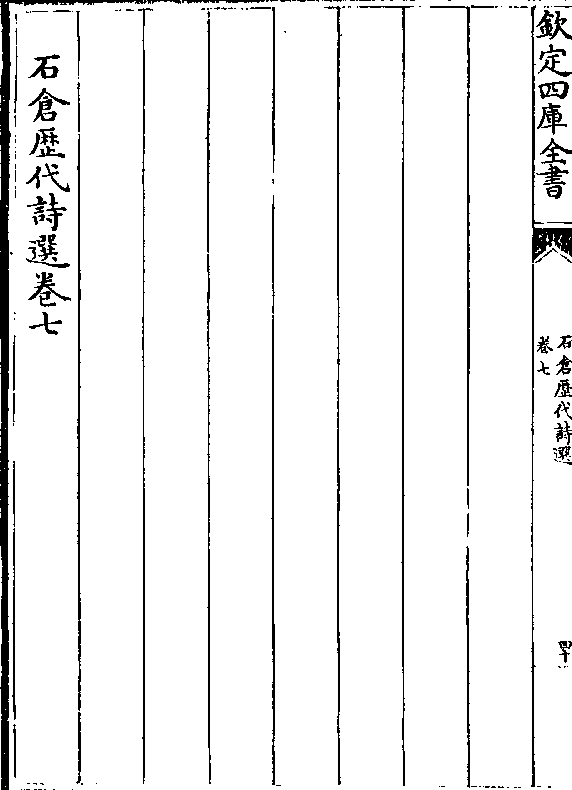 欽定四庫全書
石倉歴代詩選
卷七
石倉歴代詩選卷七